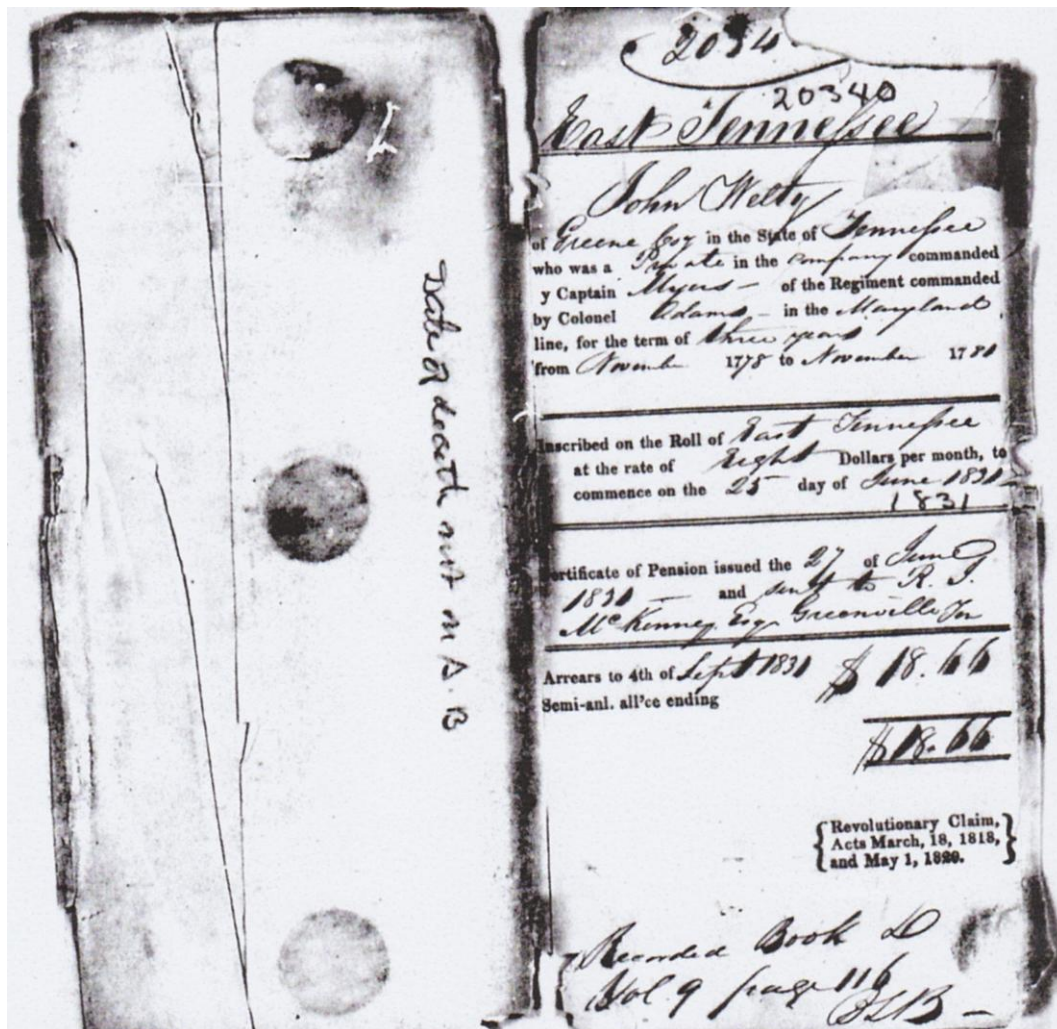 Date of death not in A. B
2034
20340
East Tennessee
John Welty
of Greene Esq in the State of Tennessee
who was a Private in the company commanded
y Captain Myers - of the Regiment commanded
by Colonel Adams - in the Maryland
line, for the term of three years
from November 1778 to November 1781
Inscribed on the Roll of East Tennessee
at the rate of Eight Dollars per month, to
commence on the 25 day of June 1831 -
1831
ertificate of Pension issued the 27 of June
1831 - and sent to R. J.
McKenney Esq Greenville Ten
Arrears to 4th of Sept 1831 $ 18.66
Semi-anl. all'ce ending
$18.66
{Revolutionary Claim,
Acts March, 18, 1818,
and May 1, 1820.}
Recorded Book D
Vol. 9 page 116